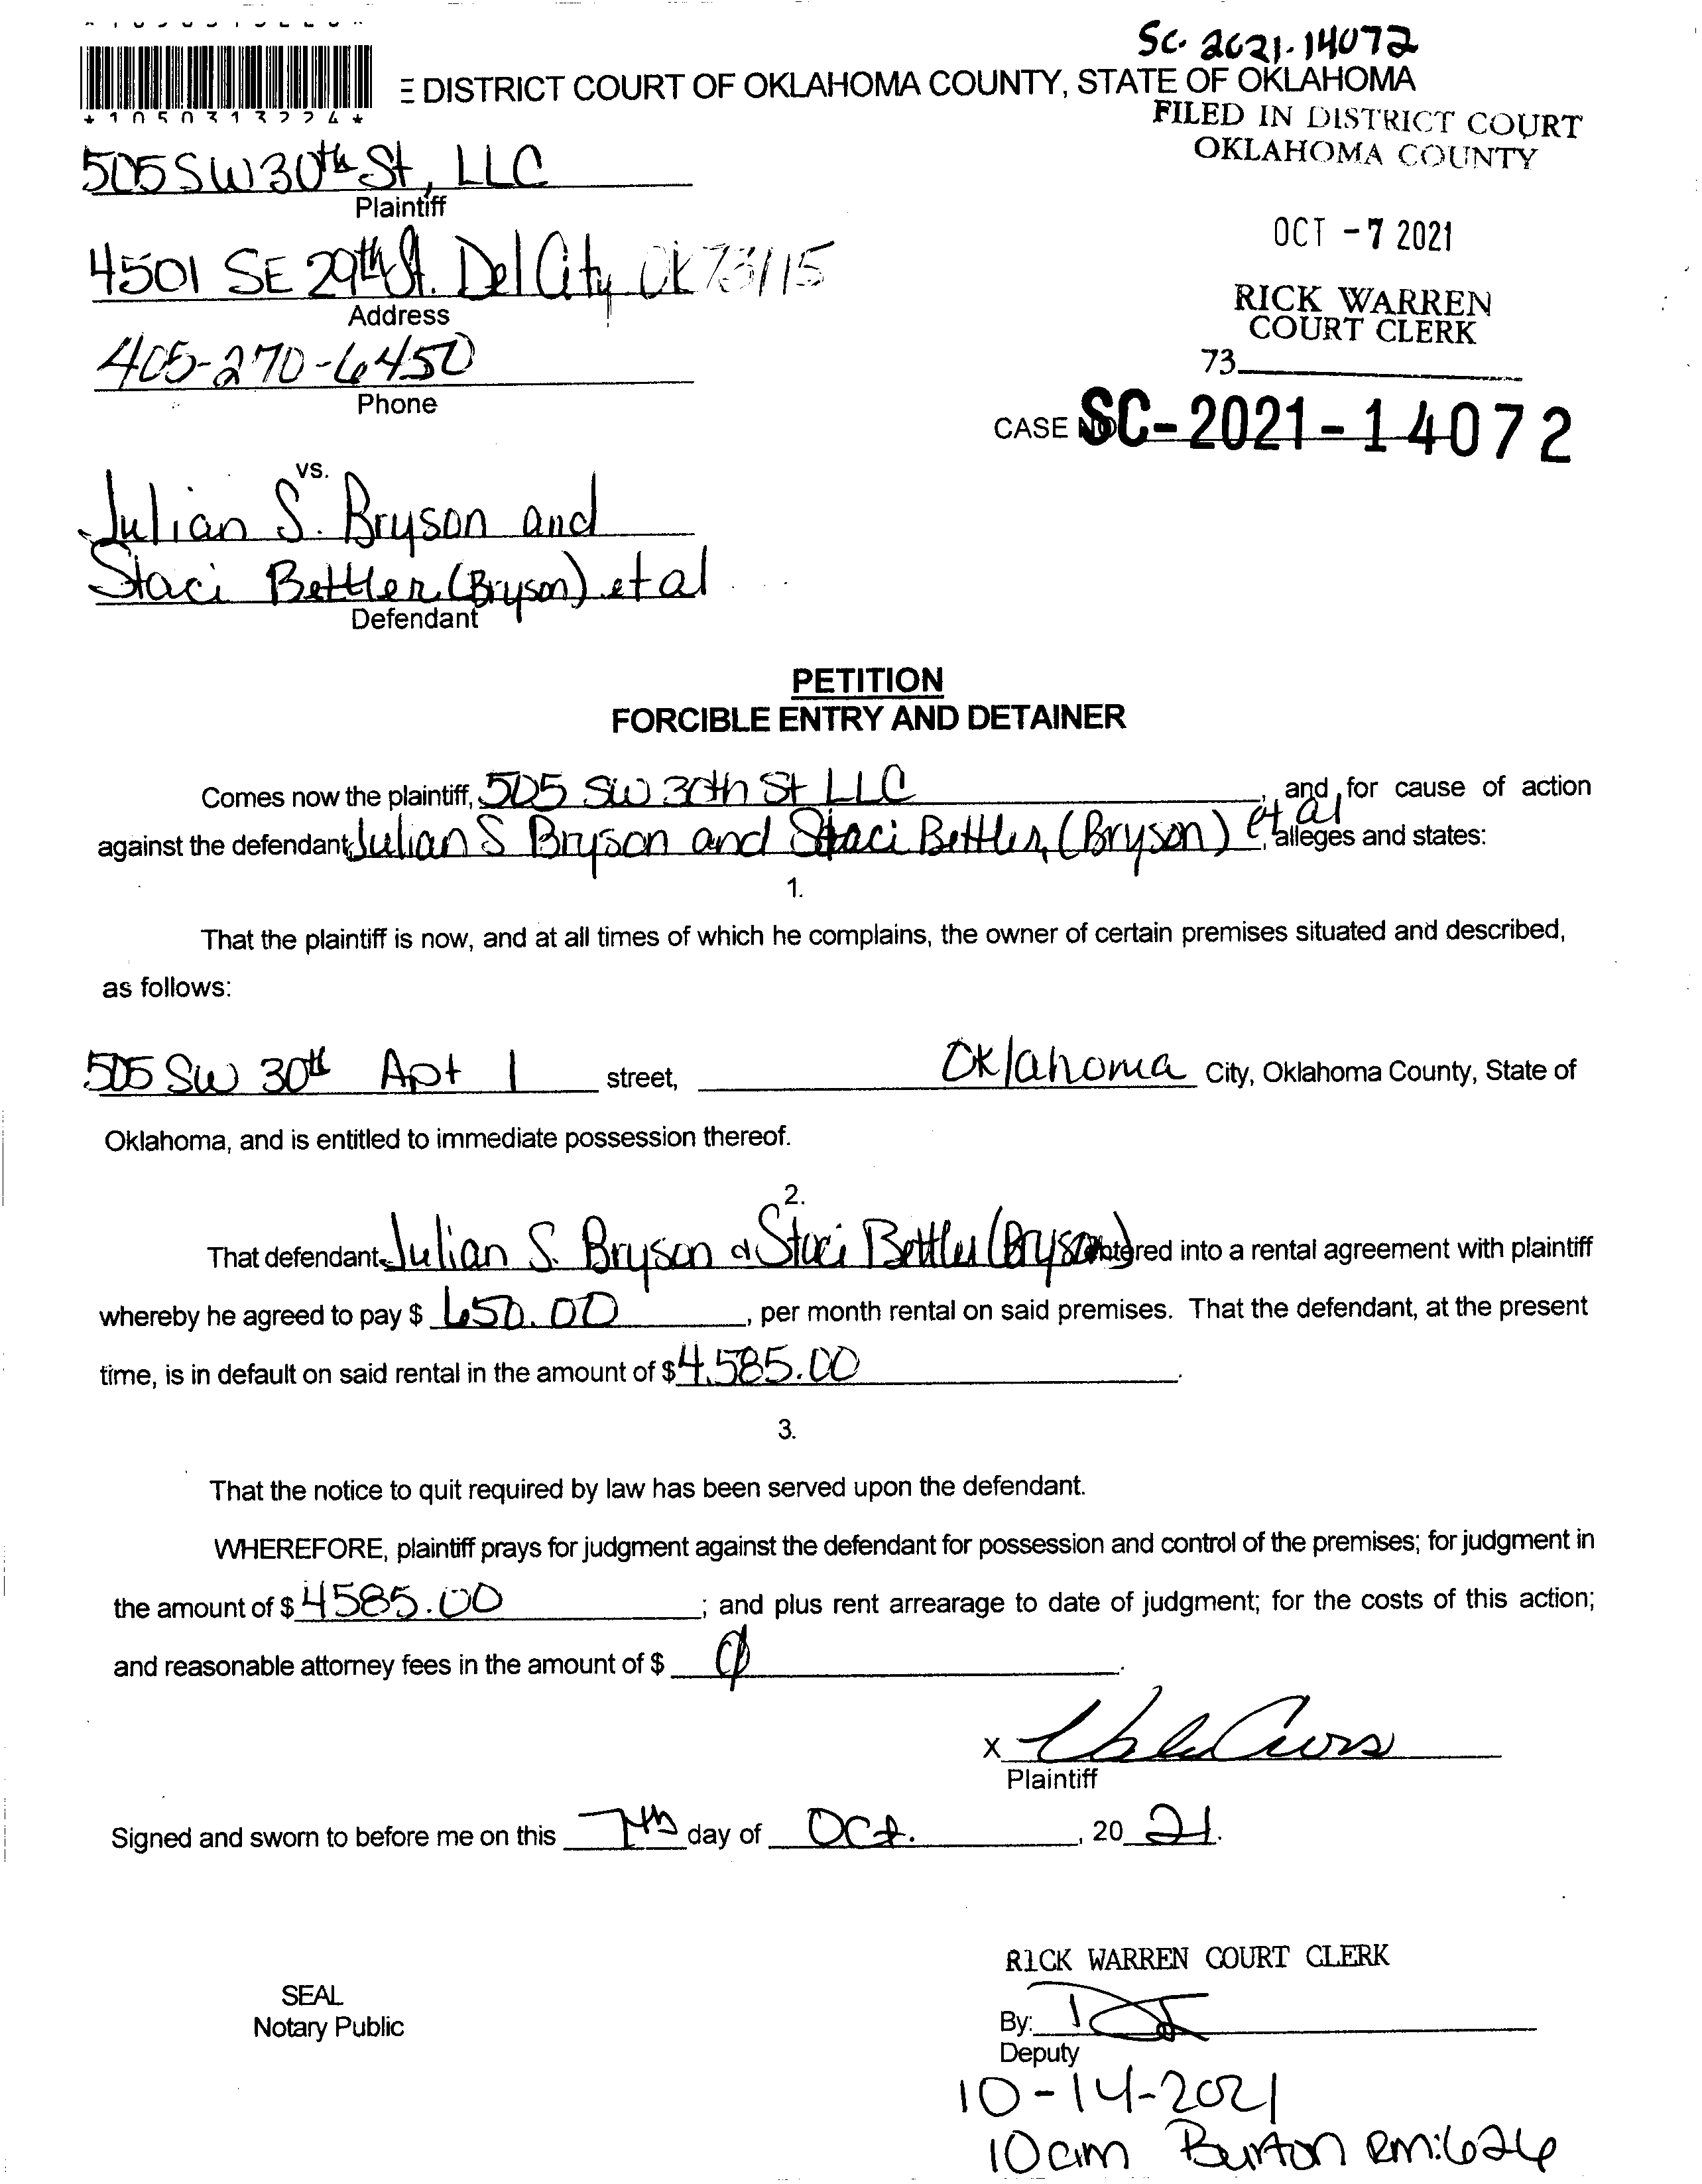 SC-2021-14072
DISTRICT COURT OF OKLAHOMA COUNTY, STATE OF OKLAHOMA
FILED IN DISTRICT COURT
OKLAHOMA COUNTY
505 SW 30th St, LLC
Plaintiff
4501 SE 29th St. Del City OK 73115
Address
OCT -7 2021
405-270-6450
Phone
RICK WARREN
COURT CLERK
73
CASE NO SC-2021-14072
vs.
Julian S. Bryson and
Staci Bettler (Bryson) et al
Defendant
PETITION
FORCIBLE ENTRY AND DETAINER
Comes now the plaintiff, 505 SW 30th St LLC, and for cause of action
against the defendant, Julian S Bryson and Staci Bettler (Bryson) et al, alleges and states:
1.
That the plaintiff is now, and at all times of which he complains, the owner of certain premises situated and described,
as follows:
505 SW 30th Apt 1 street, Oklahoma City, Oklahoma County, State of
Oklahoma, and is entitled to immediate possession thereof.
2.
That defendant, Julian S. Bryson & Staci Bettler (Bryson) entered into a rental agreement with plaintiff
whereby he agreed to pay $ 650.00, per month rental on said premises. That the defendant, at the present
time, is in default on said rental in the amount of $ 4,585.00.
3.
That the notice to quit required by law has been served upon the defendant.
WHEREFORE, plaintiff prays for judgment against the defendant for possession and control of the premises; for judgment in
the amount of $ 4585.00; and plus rent arrearage to date of judgment; for the costs of this action;
and reasonable attorney fees in the amount of $ φ.
X
Plaintiff
Signed and sworn to before me on this 7th day of Oct., 20 21.
RICK WARREN COURT CLERK
SEAL
Notary Public
By:
Deputy
10-14-2021
10am Burton Rm:626